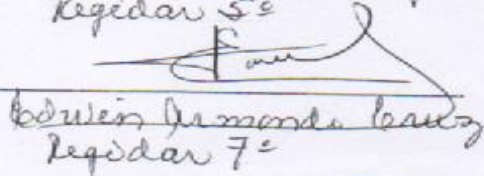 Regidor 5º
Edwin Armando Cruz
Regidor 7º